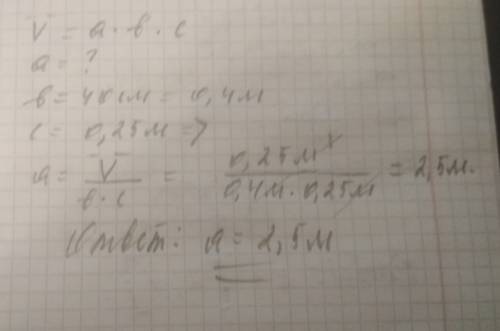 V = а · в · с
а = ?
в = 40см = 0,4м
с = 0,25м =>
а = V / в · с = 0,25м / 0,4м · 0,25м = 2,5м.
Ответ: а = 2,5м